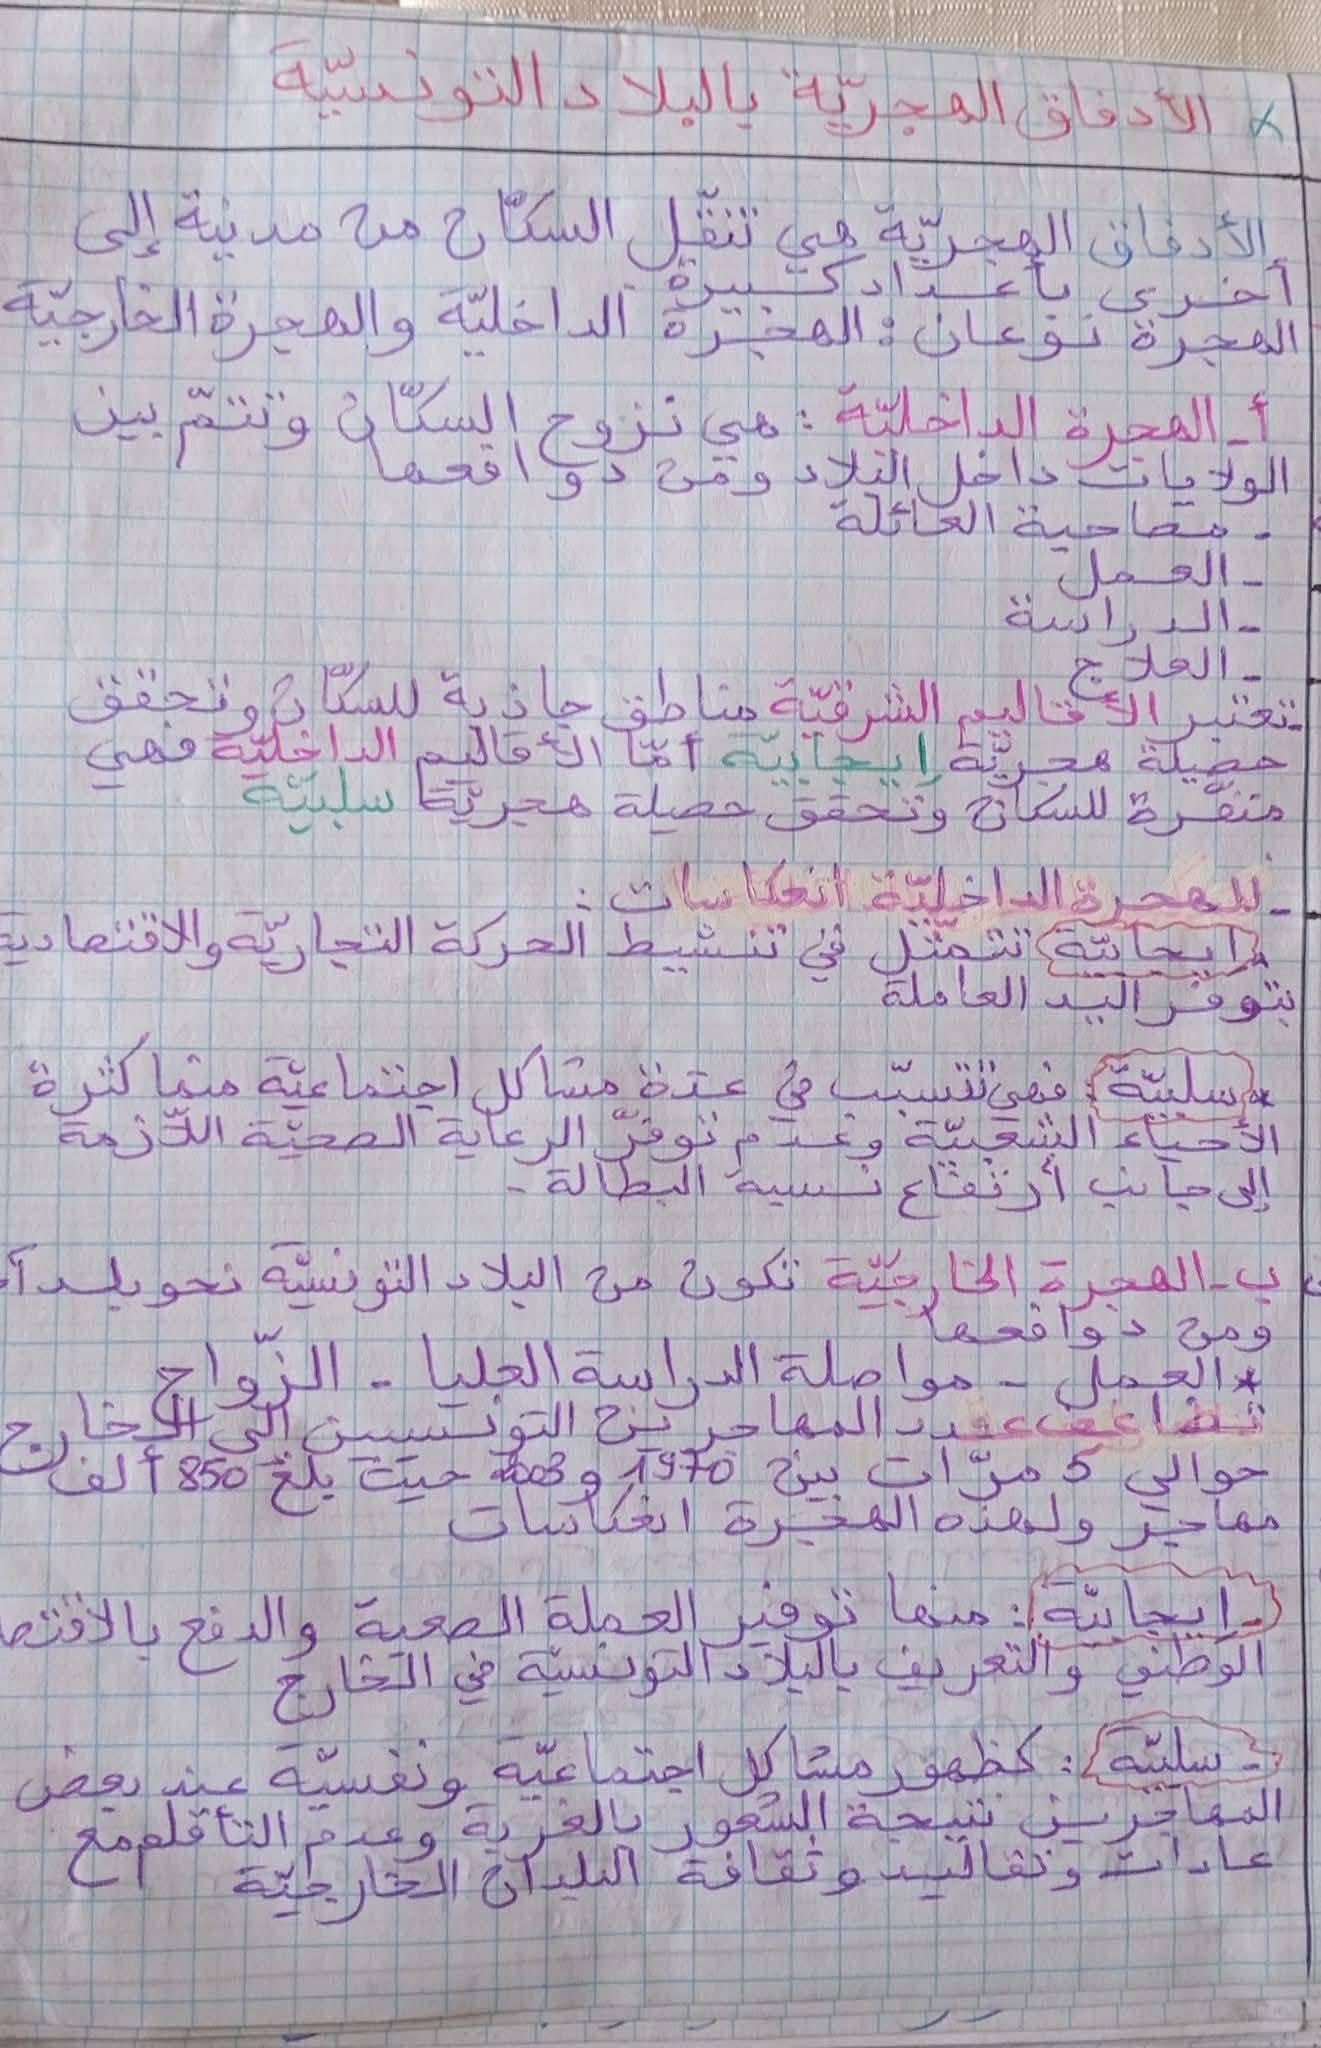 x الأدفاق الهجريّة بالبلاد التونسيّة
الأدفاق الهجريّة هي تنقّل السكّان من مدينة إلى
أخرى بأعداد كبيرة
الهجرة نوعان : الهجرة الداخليّة والهجرة الخارجيّة
أ - الهجرة الداخليّة : هي نزوح السكّان وتتمّ بين
الولايات داخل البلاد ومن دوافعها
- مصاحبة العائلة
- العمل
- الدراسة
- العلاج
- تعتبر الأقاليم الشرقيّة مناطق جاذبة للسكّان وتحقق
حصيلة هجريّة إيجابيّة أمّا الأقاليم الداخليّة فهي
منفّرة للسكان وتحقق حصيلة هجريّة سلبيّة
- للهجرة الداخليّة انعكاسات :
* إيجابيّة تتمثّل في تنشيط الحركة التجاريّة والاقتصادية
بتوفر اليد العاملة
* سلبيّة : فهي تتسبّب في عدة مشاكل اجتماعيّة منها كثرة
الأحياء الشعبيّة وعدم توفرّ الرعاية الصحيّة اللاّزمة
إلى جانب أرتفاع نسبة البطالة -
ب - الهجرة الخارجيّة تكون من البلاد التونسيّة نحو بلد
ومن دوافعها
* العمل - مواصلة الدراسة العليا - الزّواج
تضاعف عدد المهاجرين التونسيين إلى الخارج
حوالي 5 مرّات بين 1970 و 2003 حيث بلغ 850 ألف
مهاجر ولهذه الهجرة انعكاسات
- إيجابيّة : منها توفير العملة الصعبة والدفع بالاقتصا
الوطني والتعريف بالبلاد التونسيّة في الخارج
- سلبيّة : كظهور مشاكل اجتماعيّة ونفسيّة عند بعض
المهاجرين نتيجة الشعور بالغربة وعدم التأقلم مع
عادات وتقاليد وثقافة البلدان الخارجيّة